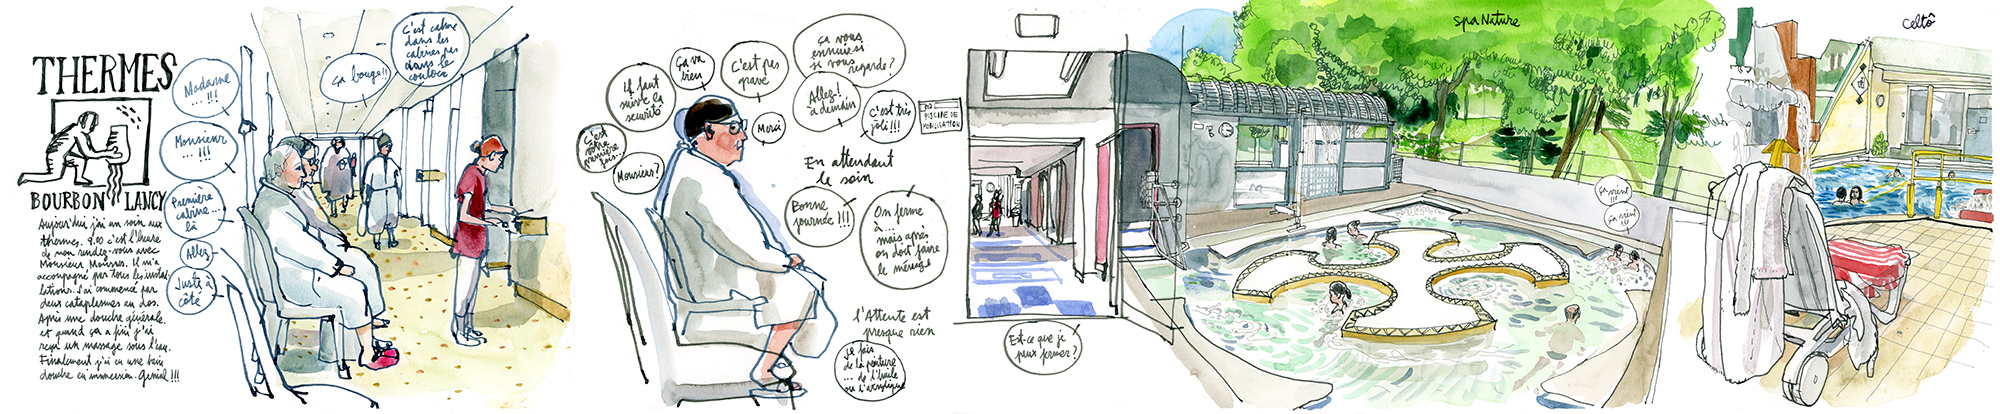 THERMES
BOURBON LANCY
Aujourd'hui j'ai un soin aux
thermes. 9.10 c'est l'heure
de mon rendez-vous avec
Monsieur
accompagné par tous les instal-
lations. J'ai commencé par
deux cataplasmes au dos.
Après une douche générale.
et quand ça a fini j'ai
reçu un massage sous l'eau.
Finalement j'ai eu une bain
douche en immersion. Génial!!!
Madame
...!!!
Monsieur
...!!!
Première
cabine...
là
Allez-
Juste à
côté
ça bouge!!
C'est calme
dans les
cabines pas
dans le
couloir
C'est
votre
première
fois...
Monsieur?
Il faut
suivre la
securité
ça va
bien
C'est pas
grave
Merci
ça vous
ennuie si
si vous
regarde?
Allez!
à demain
C'est très
joli!!!
En attendant
le soin
Bonne
journée!!!
On ferme
à...
mais après
on doit faire
le ménage
l'Attente est
presque rien
Je fais
de la peinture
... de l'huile
ou l'acrylique
PISCINE DE
MOBILISATION
Est-ce que je
peux fermer?
spa Nature
ça vient
!!!
ça vient
!!!
Celtô